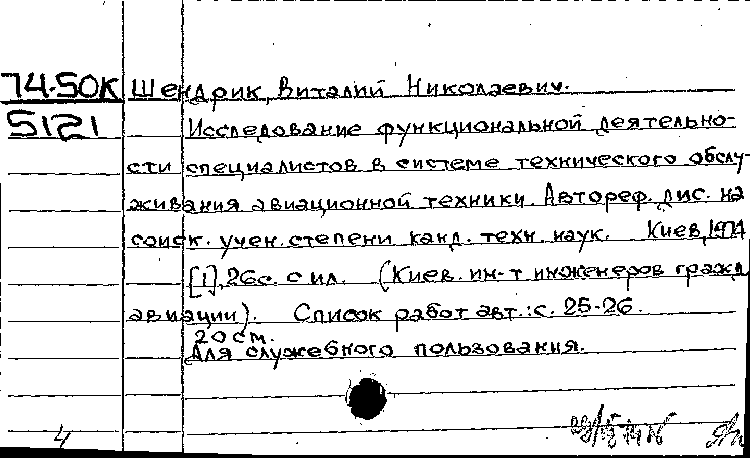 74-50К Шендрик, Виталий Николаевич.
5121 Исследование функциональной деятельно-
сти специалистов в системе технического обслу-
живания авиационной техники. Автореф. дис. на
соиск. учен. степени канд. техн. наук. Киев, 1974
[1], 26с. с ил. (Киев. ин-т инженеров гражд.
авиации). Список работ авт.: с. 25-26.
20см.
Для служебного пользования.
4